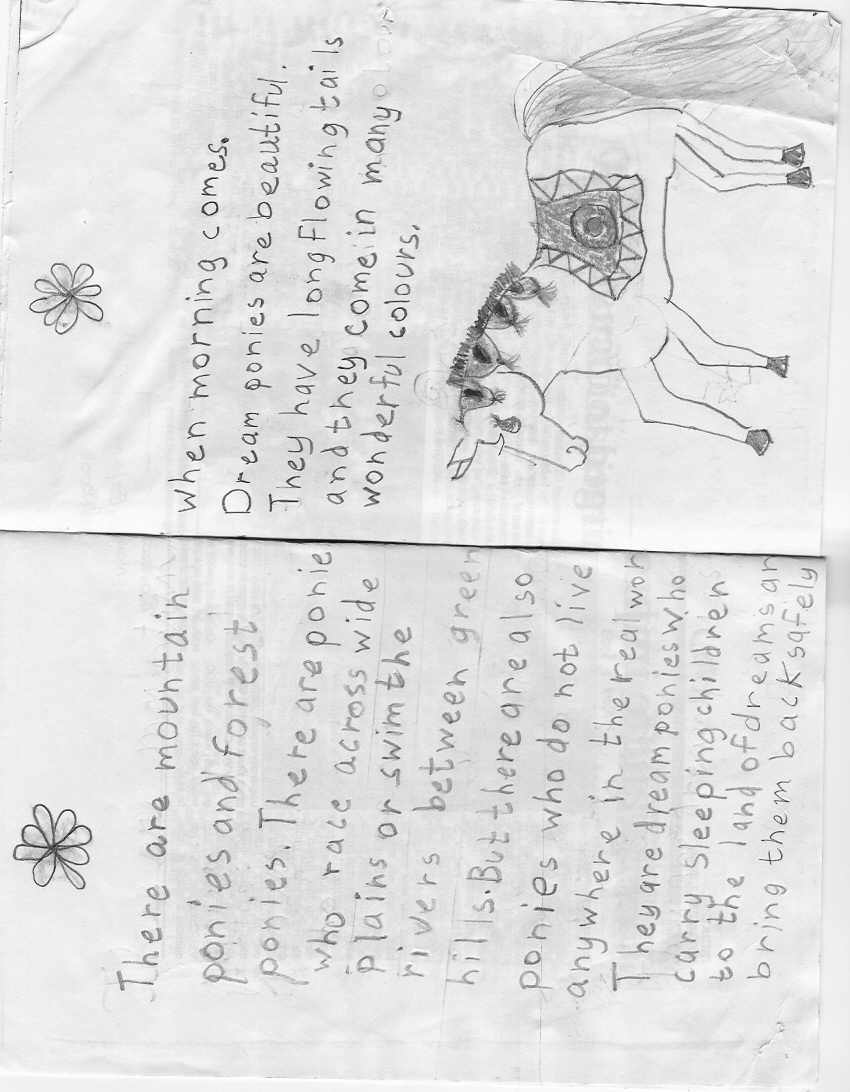 There are mountain
ponies and forest
ponies. There are ponie
who race across wide
plains or swim the
rivers between green
hills. But there are also
ponies who do not live
anywhere in the real wor
They are dream ponies who
carry sleeping children
to the land of dreams an
bring them back safely
when morning comes.
Dream ponies are beautiful.
They have long flowing tails
and they come in many
wonderful colours.